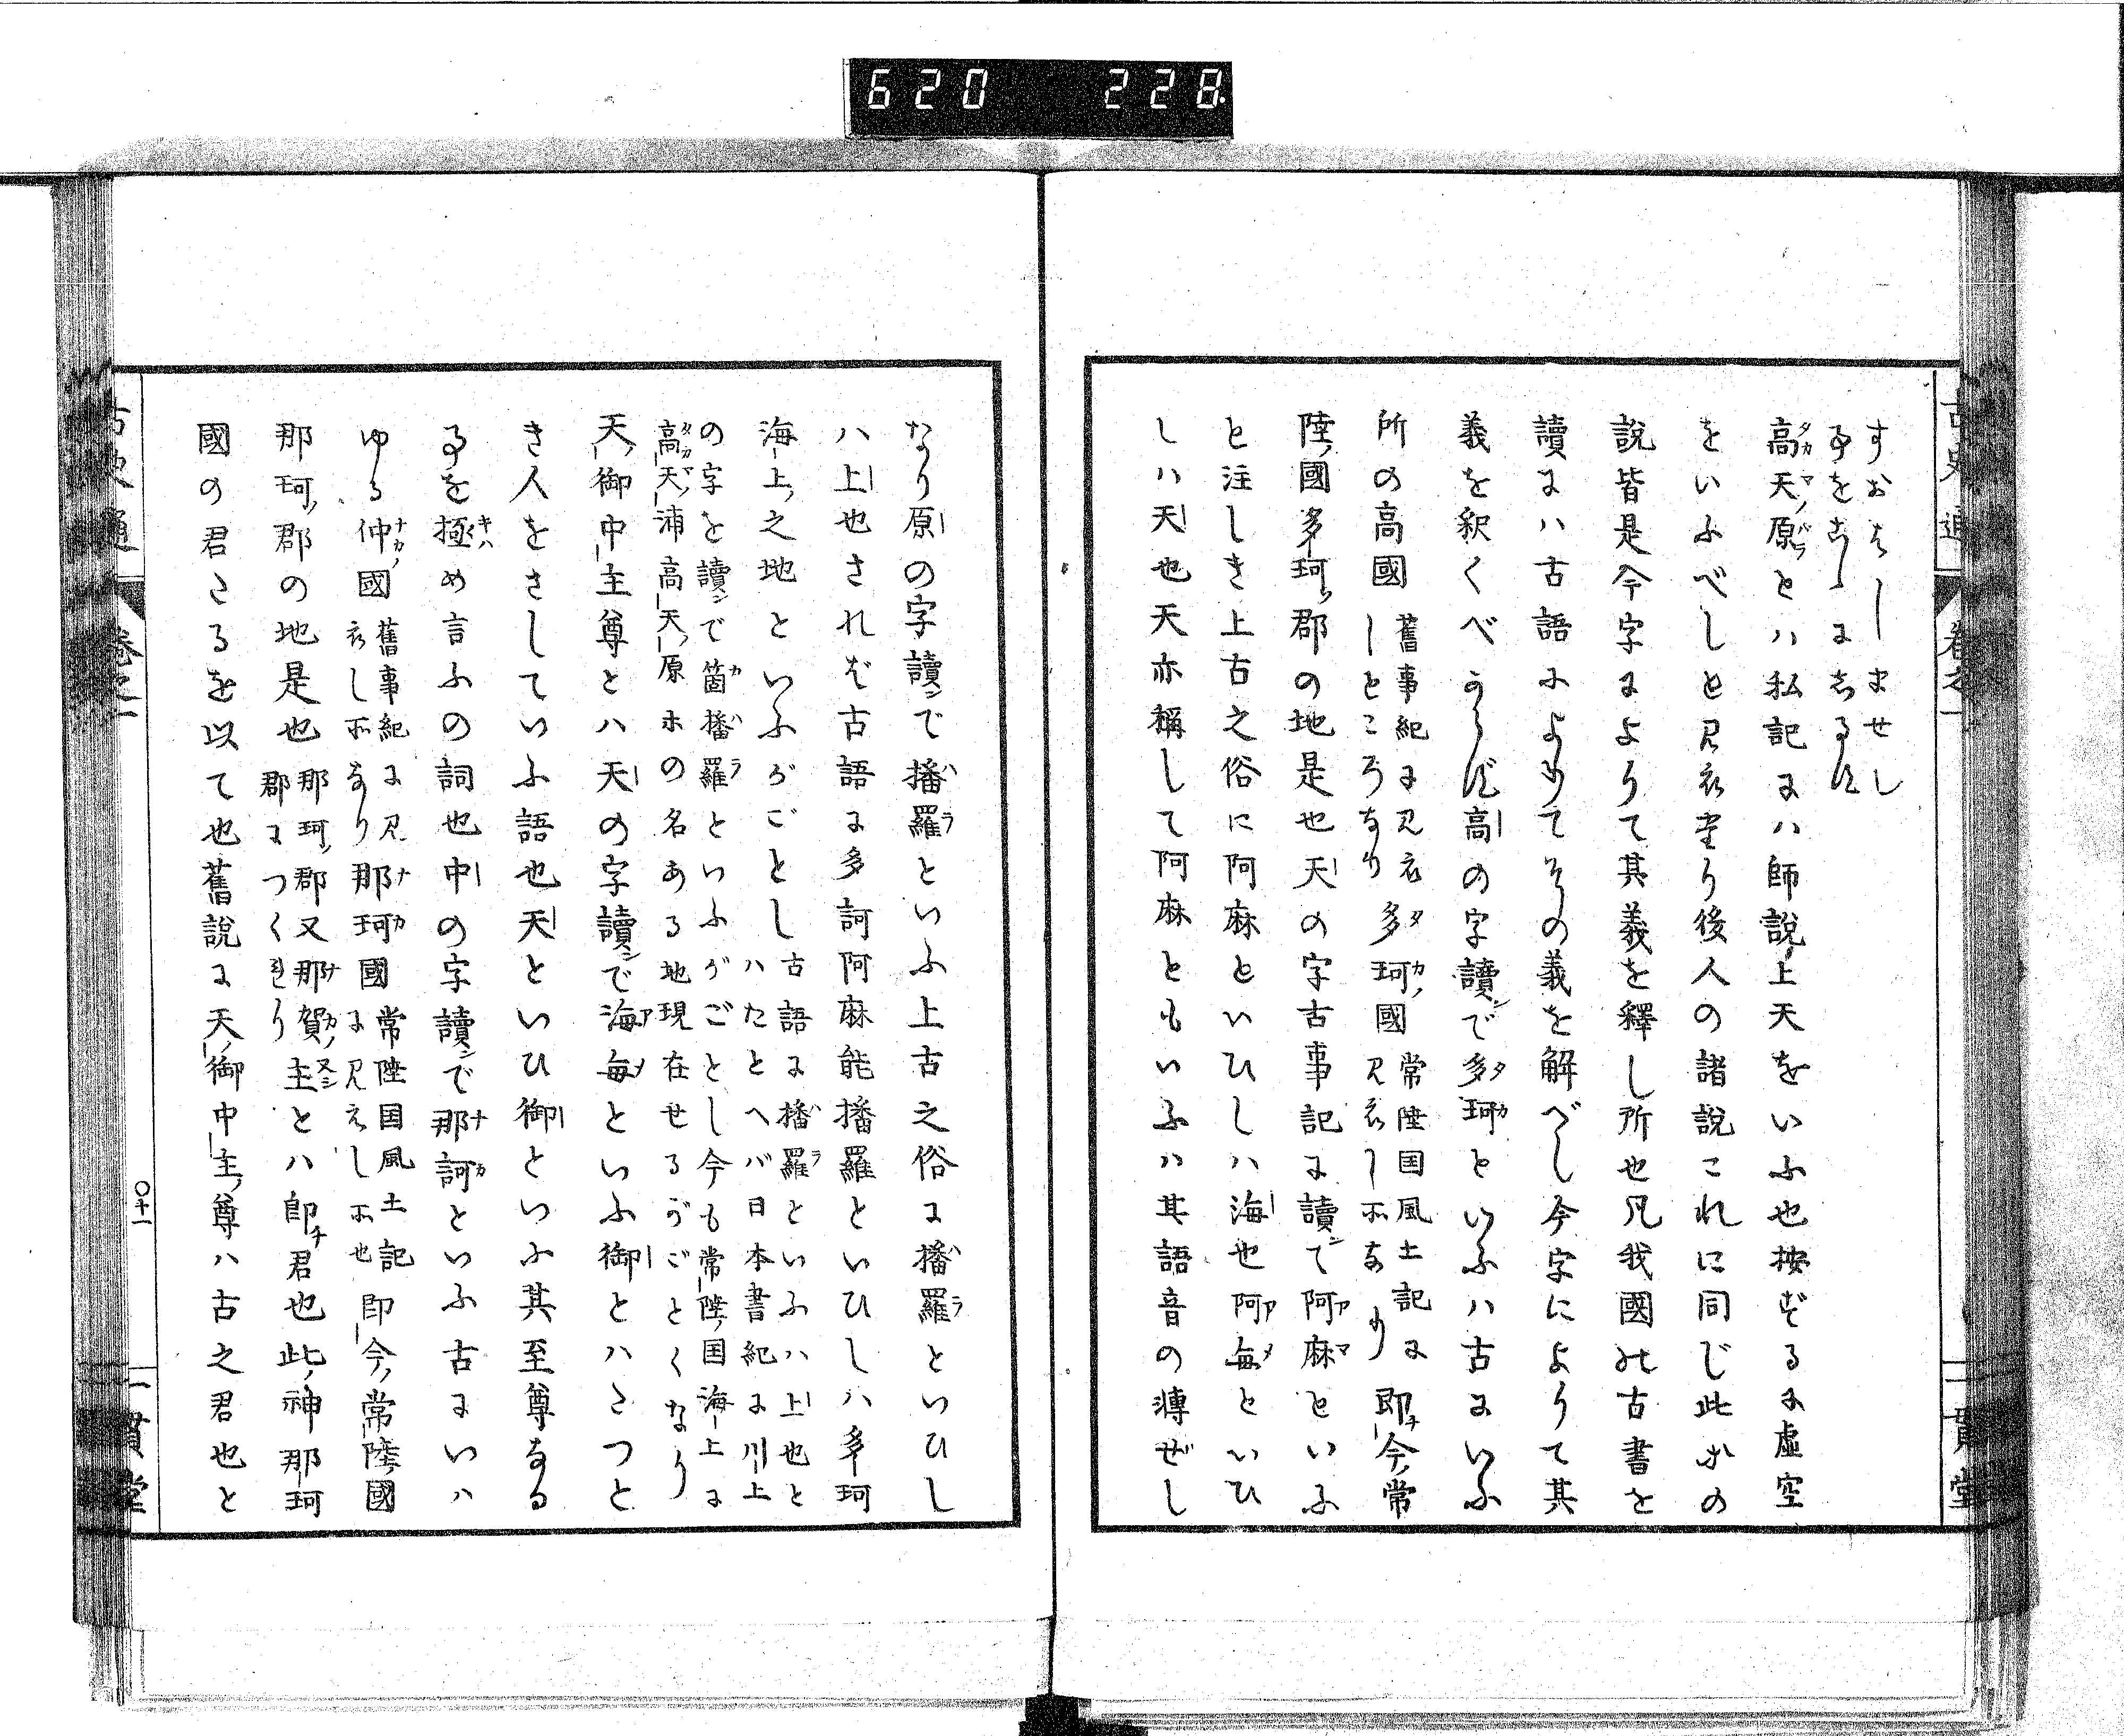 620 228
古史通 巻之一 一貫堂
すおはしませし
事をこゝにしるす
高天原とハ私記にハ師説上天をいふ也按ずるに虚空
をいふべしと見え坐り後人の諸説これに同じ此等の
説皆是今字によりて其義を釋し所也凡我國の古書を
讀にハ古語によりてその義を解べし今字によりて其
義を釈くべからず高の字讀で多珂といふハ古にいふ
所の高國
舊事紀に見え
しところなり
多珂國
常陸国風土記に
見えし所なり
即今常
陸國多珂郡の地是也天の字古事記に讀て阿麻といふ
と注しき上古之俗に阿麻といひしハ海也阿毎といひ
しハ天也天亦稱して阿麻ともいふハ其語音の轉ぜし
なり原の字讀で播羅といふ上古之俗に播羅といひし
ハ上也されば古語に多訶阿麻能播羅といひしハ多珂
海上之地といふがごとし
古語に播羅といふハ上也と
ハたとへバ日本書紀に川上
の字を讀で箇播羅といふがごとし今も常陸国海上に
高天浦高天原ホの名ある地現在せるがごとくなり
天御中主尊とハ天の字讀で海毎といふ御とハさつと
き人をさしていふ語也天といひ御といふ其至尊なる
事を極め言ふの詞也中の字讀で那訶といふ古にいハ
ゆる仲國
舊事紀に見
えし所なり
那珂國
常陸国風土記
に見えし所也
即今常陸國
那珂郡の地是也
那珂郡又那賀
郡につくれり
主とハ即君也此神那珂
國の君たるを以て也舊説に天御中主尊ハ古之君也と
古史通 巻之一 〇十一 一貫堂